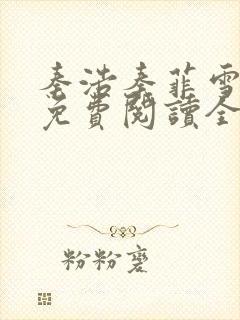 秦浩秦菲雪
免費閱讀全
粉粉褒